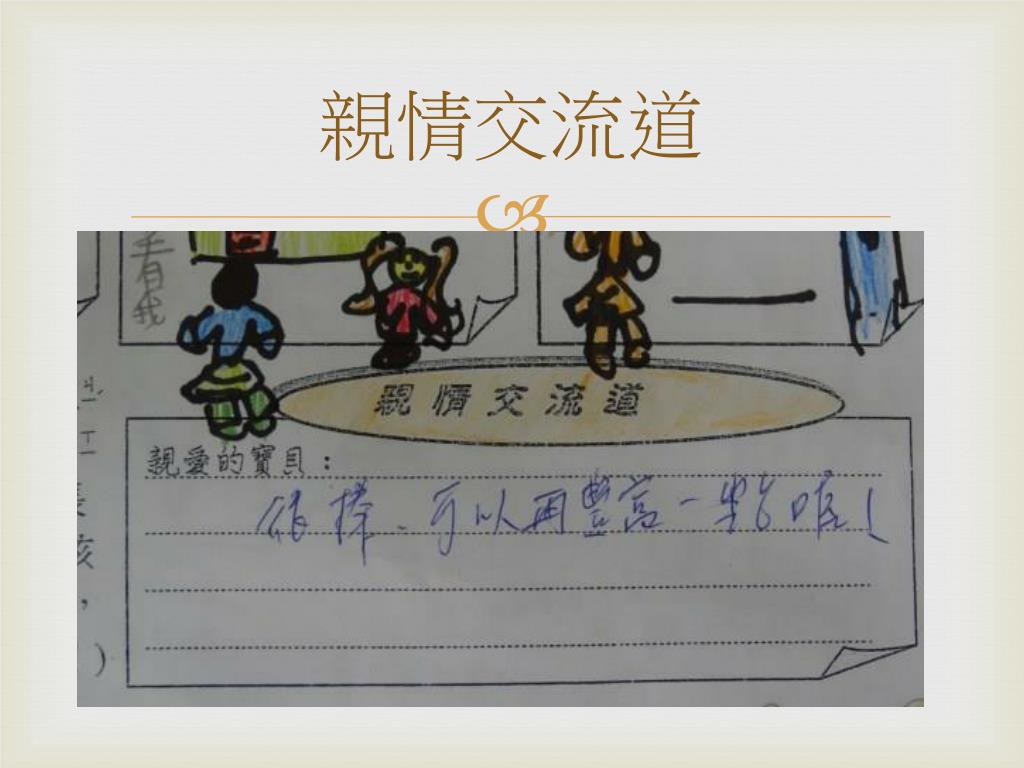 親情交流道
我
親情交流道
親愛的寶貝：
很棒、可以再豐富一點喔！
，
）